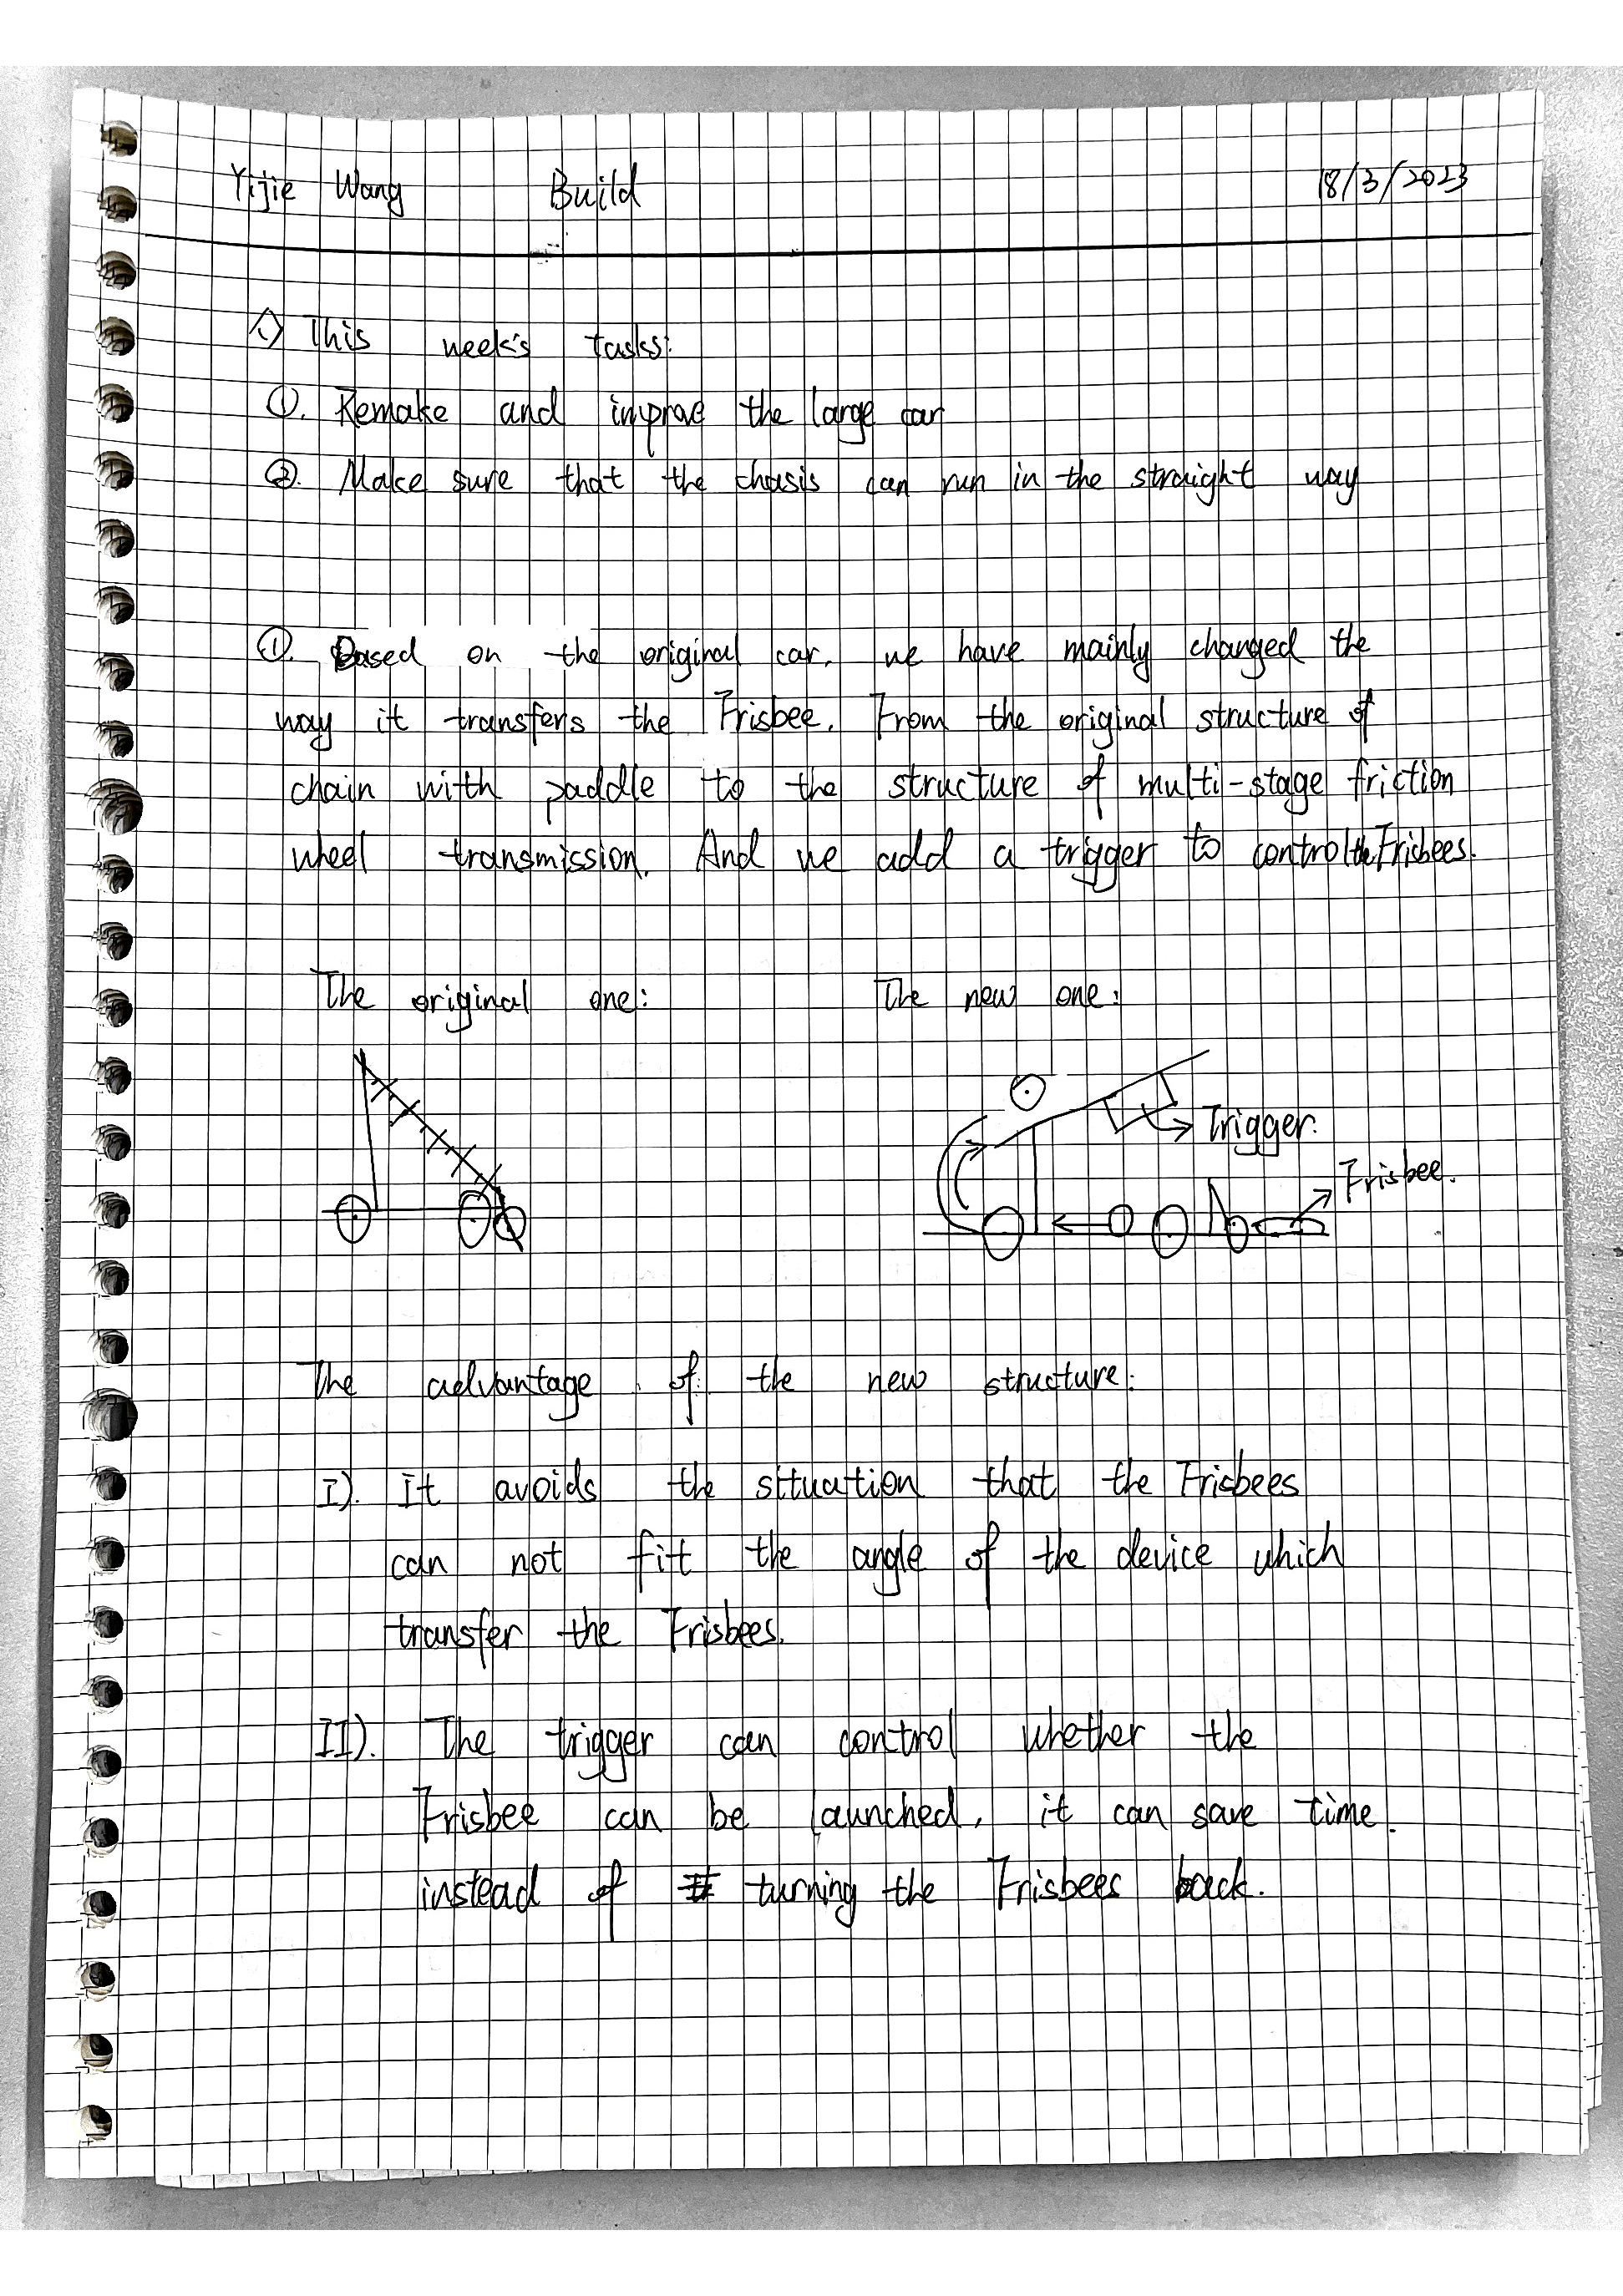 Yijie Wang Build 18/3/2023
1) This week's tasks:
①. Remake and improve the large car
②. Make sure that the chasis can run in the straight way
①. Based on the original car, we have mainly changed the
way it transfers the Frisbee. From the original structure of
chain with paddle to the structure of multi-stage friction
wheel transmission. And we add a trigger to control the Frisbees.
The original one: The new one:
Trigger.
Frisbee.
The advantage of the new structure:
I). It avoids the situation that the Frisbees
can not fit the angle of the device which
transfer the Frisbees.
II). The trigger can control whether the
Frisbee can be launched, it can save time.
instead of turning the Frisbees back.